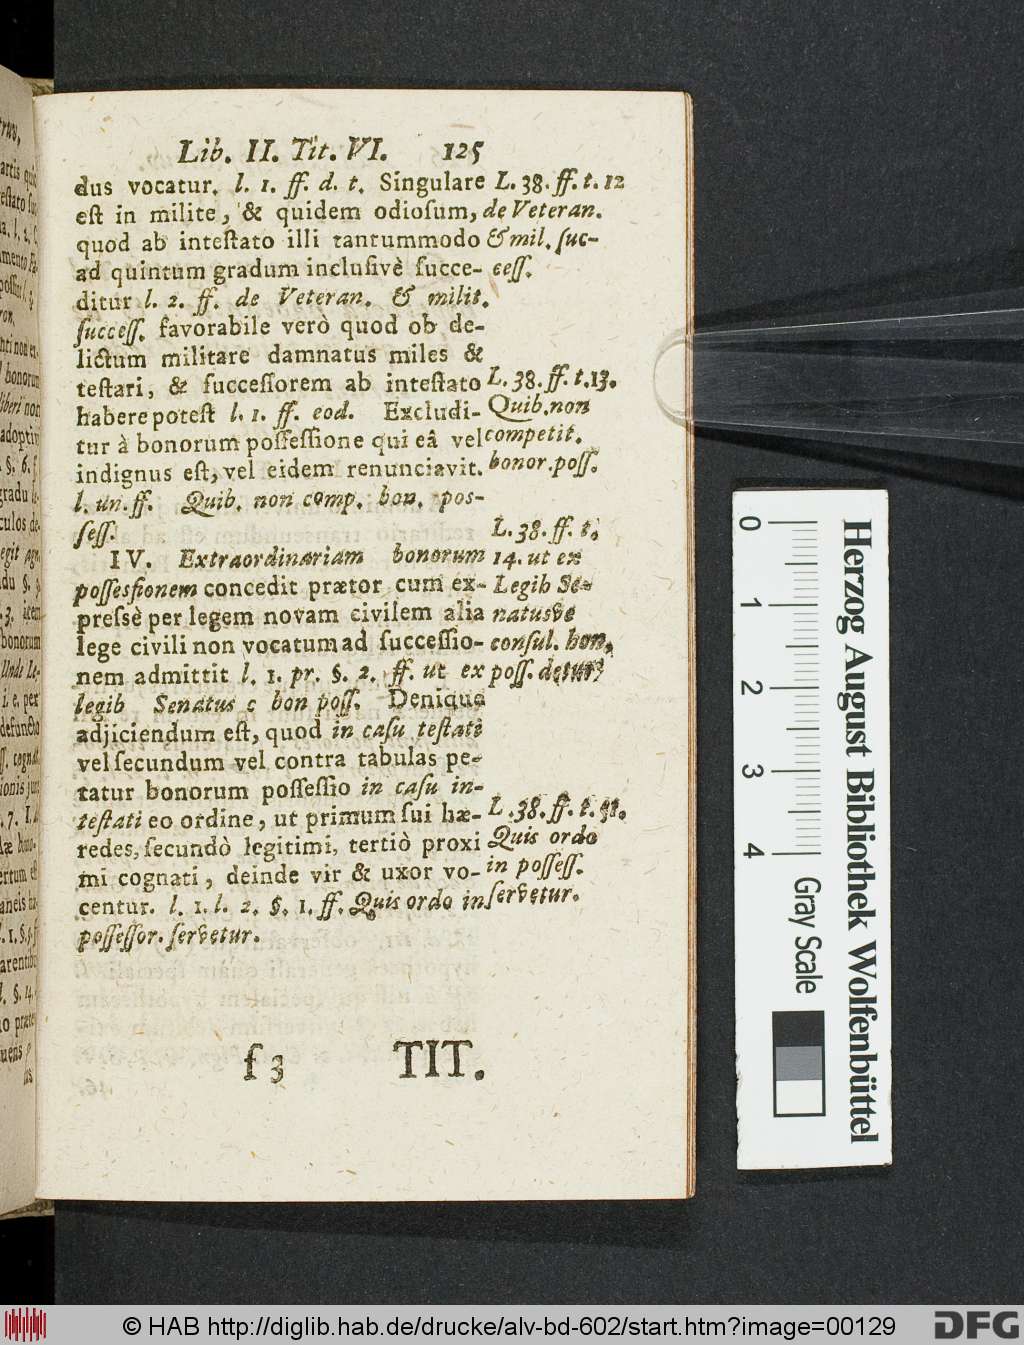 Lib. II. Tit. VI. 125
dus vocatur. l. 1. ff. d. t. Singulare
eſt in milite, & quidem odioſum,
quod ab inteſtato illi tantummodo
ad quintum gradum incluſivè ſucce-
ditur l. 2. ff. de Veteran. & milit.
ſucceſſ. favorabile verò quod ob de-
lictum militare damnatus miles &
teſtari, & ſucceſſorem ab inteſtato
habere poteſt l. 1. ff. eod. Excludi-
tur à bonorum poſſeſſione qui eâ vel
indignus eſt, vel eidem renunciavit.
l. un. ff. Quib. non comp. bon. poſ-
ſeſſ.
IV. Extraordinariam bonorum
poſſesſionem concedit prætor cum ex-
preſsè per legem novam civilem alia
lege civili non vocatum ad ſucceſſio-
nem admittit l. 1. pr. §. 2. ff. ut ex
legib Senatus c bon poſſ. Denique
adjiciendum eſt, quod in caſu teſtati
vel ſecundum vel contra tabulas pe-
tatur bonorum poſſeſſio in caſu in-
teſtati eo ordine, ut primum ſui hæ-
redes, ſecundò legitimi, tertiò proxi
mi cognati, deinde vir & uxor vo-
centur. l. 1. l. 2. §. 1. ff. Quis ordo in
poſſeſſor. ſervetur.
L. 38. ff. t. 12
de Veteran.
& mil. ſuc-
ceſſ.
L. 38. ff. t. 13.
Quib. non
competit.
bonor. poſſ.
L. 38. ff. t.
14. ut ex
Legib Se-
natusve
conſul. bon.
poſſ. detur
L. 38. ff. t.
Quis ordo
in poſſeſſ.
ſervetur.
f 3 TIT.
0 1 2 3 4
Gray Scale
Herzog August Bibliothek Wolfenbüttel
© HAB http://diglib.hab.de/drucke/alv-bd-602/start.htm?image=00129
DFG